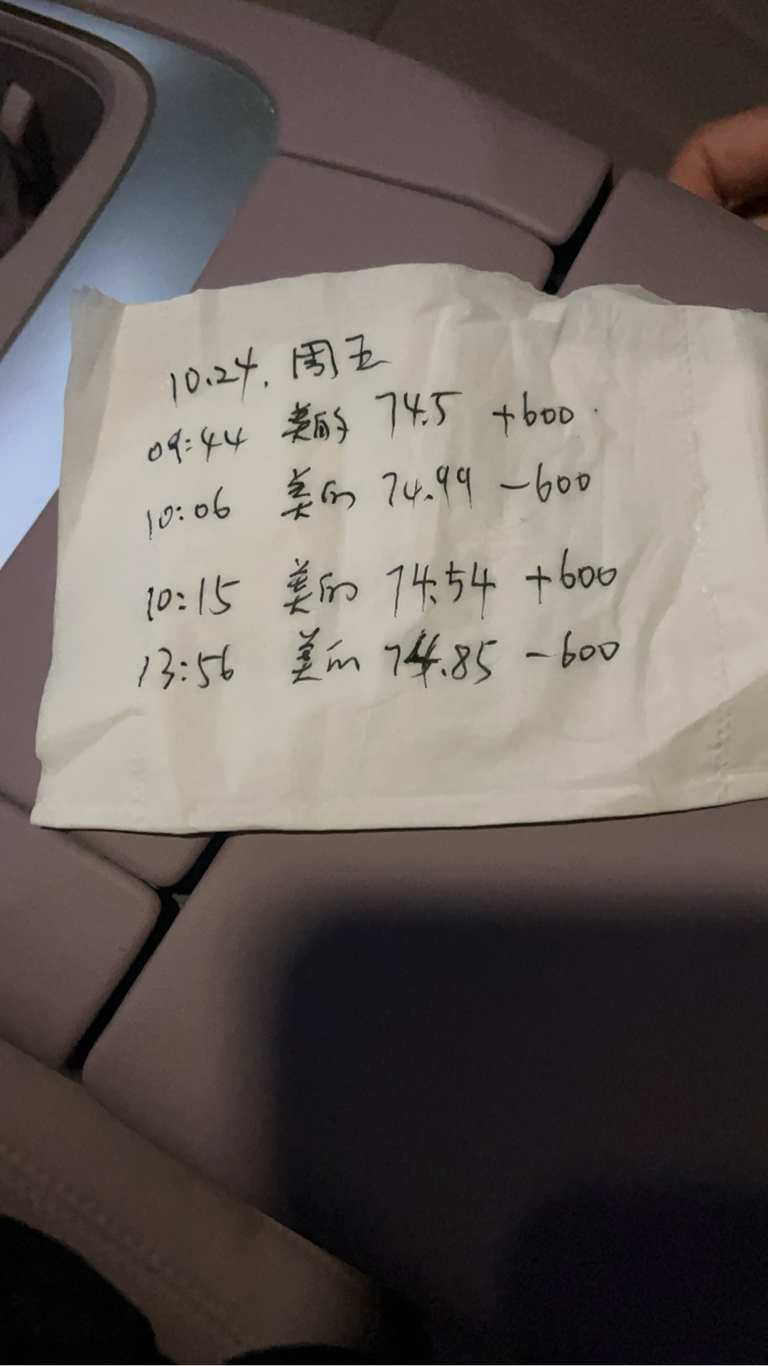 10.24. 周五
09:44 美的 74.5 +600
10:06 美的 74.99 -600
10:15 美的 74.54 +600
13:56 美的 74.85 -600